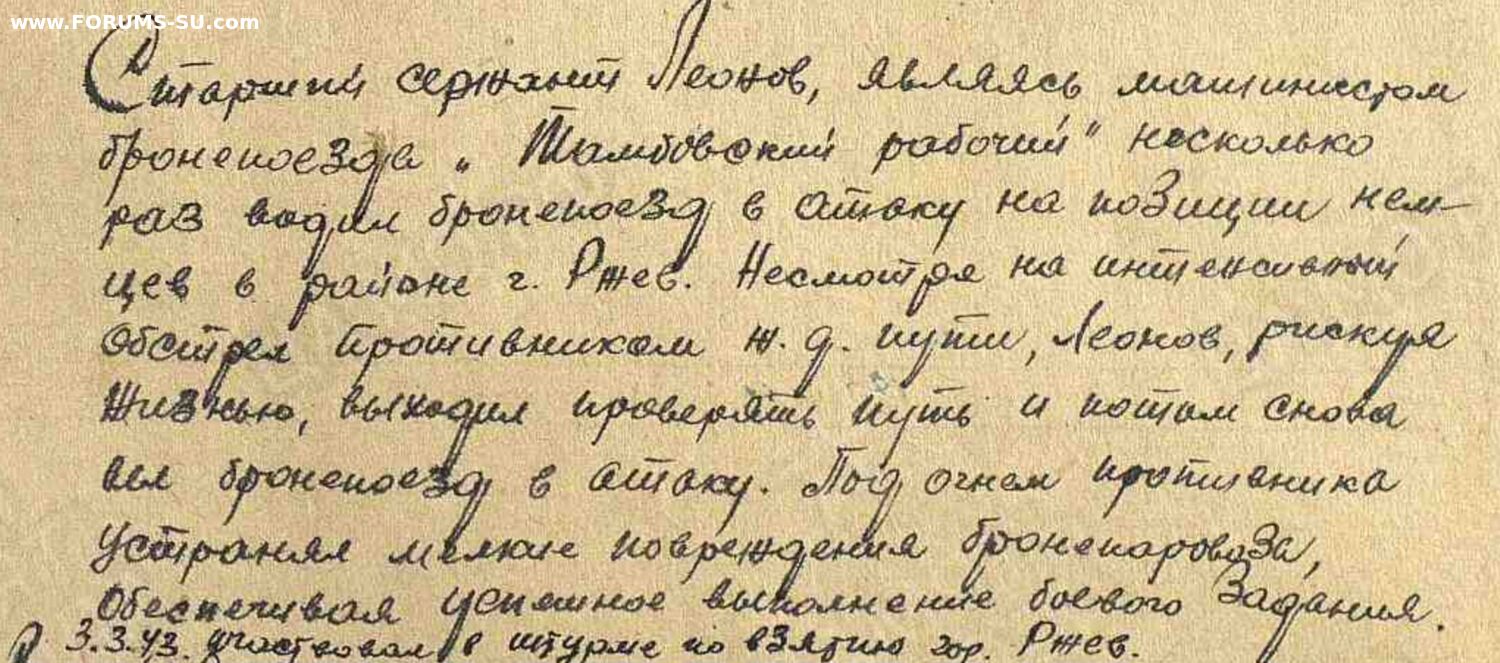 www.FORUMS-SU.com
Старший сержант Леонов, являясь машинистом
бронепоезда „Тамбовский рабочий" несколько
раз водил бронепоезд в атаку на позиции нем-
цев в районе г. Ржев. Несмотря на интенсивный
обстрел противником ж.д. пути, Леонов, рискуя
жизнью, выходил проверять путь и потом снова
вел бронепоезд в атаку. Под огнем противника
устранял мелкие повреждения бронепаровоза,
обеспечивая успешное выполнение боевого задания.
3.3.43. участвовал в штурме по взятию гор. Ржев.